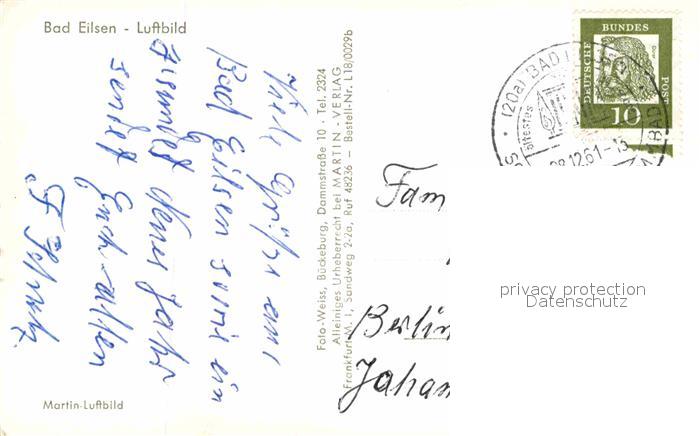 Bad Eilsen - Luftbild
Viele Grüße aus
Bad Eilsen sowie ein
neues Jahr
sendet Euch allen
Martin-Luftbild
Foto-Weiss, Bückeburg, Dammstraße 10 · Tel. 2324
Alleiniges Urheberrecht bei MARTIN-VERLAG
Frankfurt/M. 1, Sandweg 2-2a, Ruf 48236 - Bestell-Nr. L18/0029b
(20a) BAD
ältestes
12.61-15
DEUTSCHE BUNDES POST
10
Fam
Berlin
Johan
privacy protection
Datenschutz